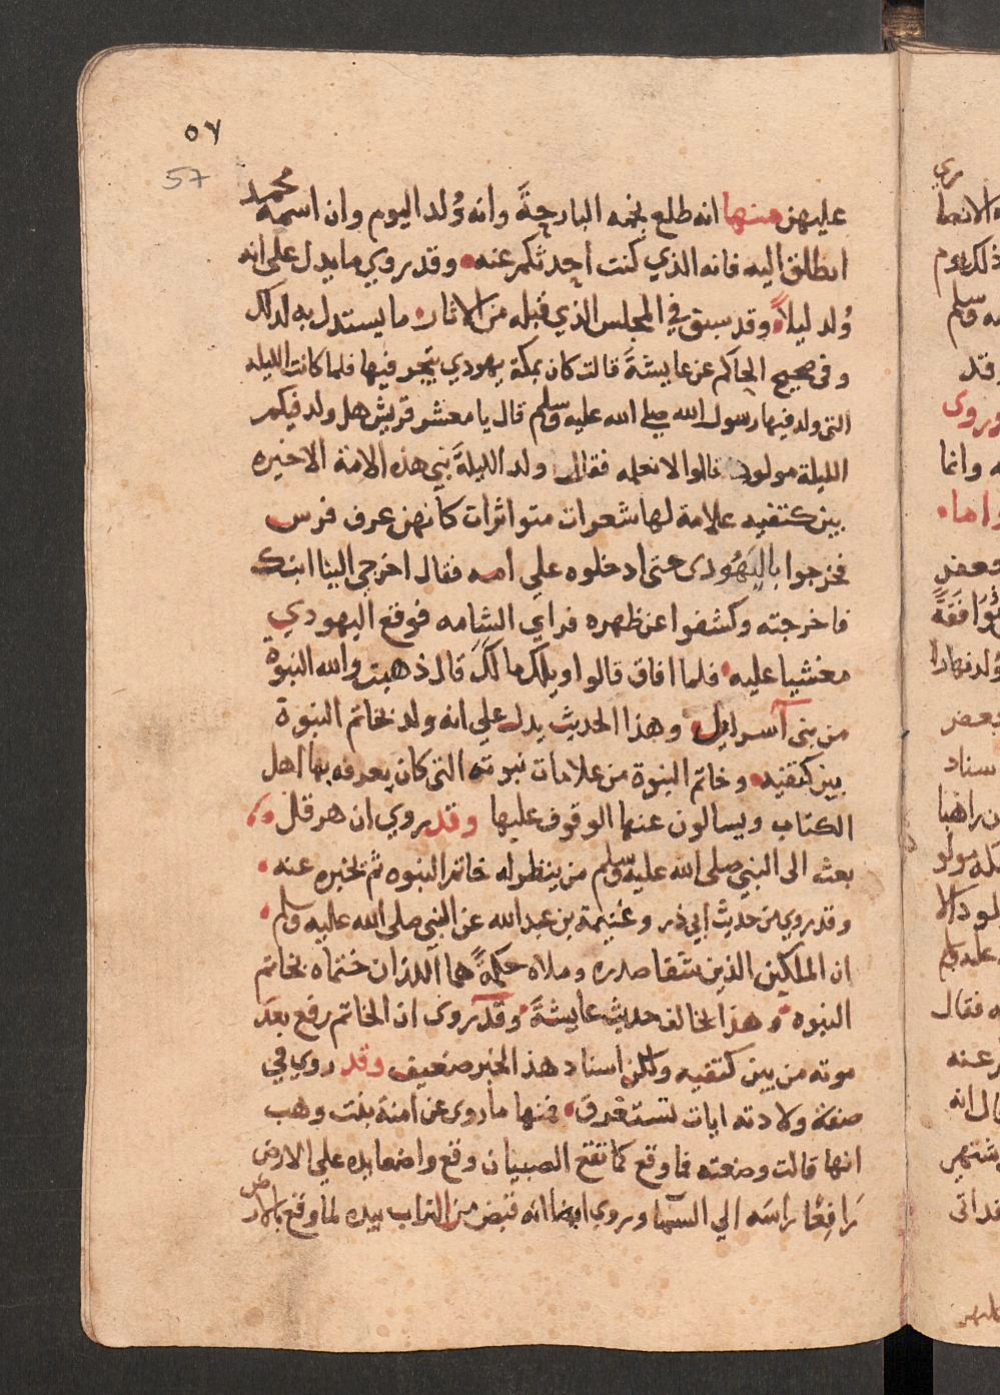 ٥٧
57
عليهن منها انه طلع نجمه البارحةَ وانه وُلد اليوم وان اسمه محمد
انطلق اليه فانه الذي كنت احدثكم عنه وقد روي ما يدل على انه
وُلد ليلاً وقد سبق في المجلس الذي قبله من الاثار ما يستدل به لذلك
وفى صحيح الحاكم عن عايشةَ قالت كان بمكة يهودي يتجر فيها فلما كانت الليله
التى ولد فيها رسول الله صلى الله عليه وسلم قال يا معشر قريش هل ولد فيكم
الليلة مولود قالوا لا نعلمه فقال ولد الليلةَ نبي هذه الامة الاخيره
بين كتفيه علامة لها شعرات متواترات كانهن عرف فرس
فخرجوا باليَهُودى حتى ادخلوه علي امه فقال اخرجي الينا ابنك
فاخرجته وكشفوا عن ظهره فراي الشامه فوقع اليهودي
مغشيا عليه فلما افاق قالوا ويلك ما لكَ قال ذهبت والله النبوة
من بنى آسرايل وهذا الحديث يدل علي انه ولد بخاتم النبوة
بين كتفيه وخاتم النبوة من علامات نبوته التى كان يعرفه بها اهل
الكتاب ويسالون عنها الوقوف عليها وقد روي ان هرقل
بعث الى النبي صلى الله عليه وسلم من ينظر له خاتم النبوه ثم يخبره عنه
وقد روي من حديث ابي ذر وعُتيمة بن عبد الله عن النبى صلى الله عليه وسلم
ان الملكين الذين شقا صدره وملاه حكمةً هما اللذان ختماه بخاتم
النبوه وهذا يخالف حديث عايشةَ وقد روى ان الخاتم رفع بعدَ
موته من بين كتفيه ولكن اسناد هذ الخبر ضعيف وقد روي في
صفة ولادته ايات تستغرق فمنها ما روى عن امنة بنت وهب
انها قالت وضعته فما وقع كما تقع الصبيان وقع واضعا يده علي الارض
رَافِعًا راسَه الي السمآ وروي ايضا انه قبض من التراب بيده لما وقع بالارض